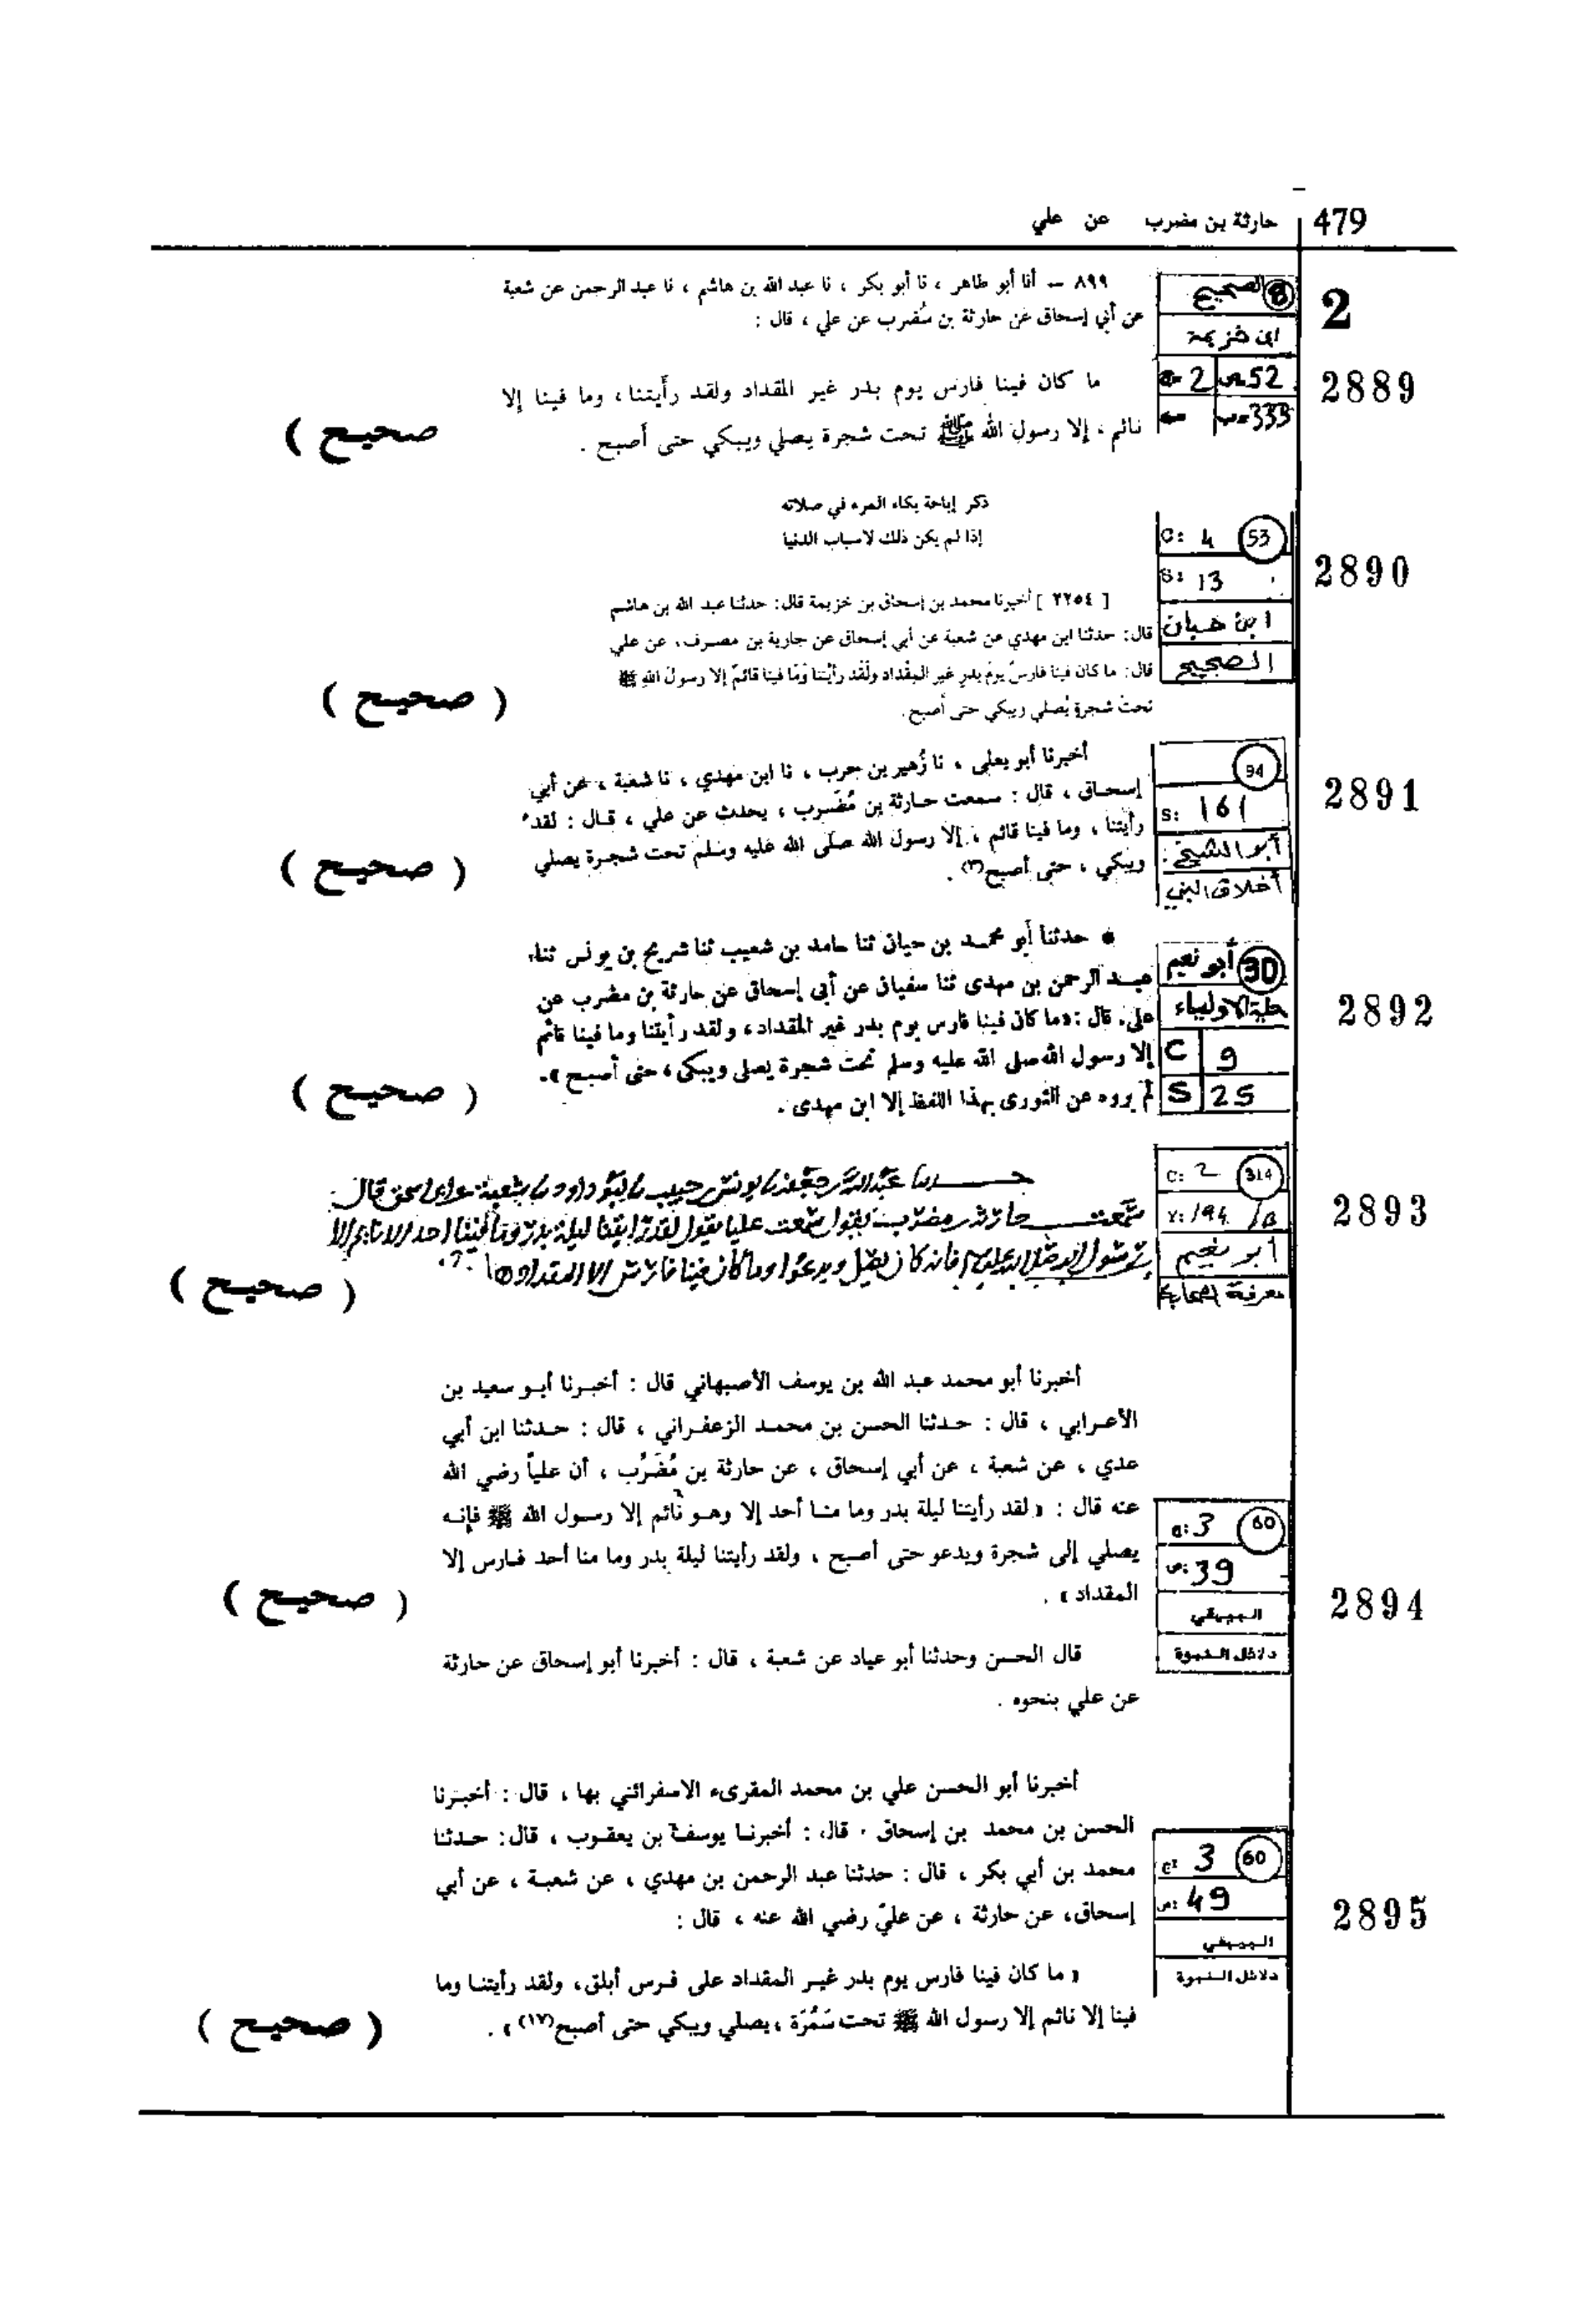 479 حارثة بن مضرب عن علي
2
الصحيح 8
ابن خزيمة
2889
2 52
333
٨٩٩ – أنا أبو طاهر ، نا أبو بكر ، نا عبد الله بن هاشم ، نا عبد الرحمن عن شعبة
عن أبي إسحاق عن حارثة بن مُضرب عن علي ، قال :
ما كان فينا فارس يوم بدر غير المقداد ولقد رأيتنا ، وما فينا إلا
نائم ، إلا رسول الله ﷺ تحت شجرة يصلي ويبكي حتى أصبح .
صحيح )
ذكر إباحة بكاء المرء في صلاته
إذا لم يكن ذلك لاسباب الدنيا
2890
C: 4 53
S: 13
ابن حبان
الصحيح
[ ٢٢٥٤ ] أخبرنا محمد بن إسحاق بن خزيمة قال: حدثنا عبد الله بن هاشم
قال: حدثنا ابن مهدي عن شعبة عن أبي إسحاق عن جارية بن مصرف، عن علي
قال: ما كان فينا فارسٌ يومَ بدرٍ غير المِقْداد ولَقَد رأيتنا وَمَا فينا قائمٌ إلا رسولَ اللهِ ﷺ
تحتَ شجرةٍ يُصلي ويبكي حتى أصبح.
( صحيح )
2891
94
S: 161
أبو الشيخ:
أخلاق النبي
أخبرنا أبو يعلى ، نا زُهير بن حرب ، نا ابن مهدي ، نا شعبة ، عن أبي
إسحاق ، قال : سمعت حارثة بن مُضَرب ، يحدث عن علي ، قال : لقد
رأيتنا ، وما فينا قائم ، إلا رسول الله صلى الله عليه وسلم تحت شجرة يصلي
ويبكي ، حتى أصبح(٣) .
( صحيح )
2892
أبو نعيم 30
حلية الاولياء
C 9
S 25
* حدثنا أبو محمد بن حيان ثنا حامد بن شعيب ثنا شريح بن يونس ثنا
عبد الرحمن بن مهدى ثنا سفيان عن أبى إسحاق عن حارثة بن مضرب عن
على. قال : «ما كان فينا فارس يوم بدر غير المقداد ، ولقد رأيتنا وما فينا قائم
إلا رسول الله صلى الله عليه وسلم تحت شجرة يصلى ويبكى ، حتى أصبح ».
لم يروه عن الثورى بهذا اللفظ إلا ابن مهدى .
( صحيح )
2893
C: 2 314
V: 194 /B
أبو نعيم
معرفة الصحابة
عبد الله بن جعفر يونس بن حبيب أبو داود شعبة عن ابى اسحق قال
سمعت حارثة بن مضرب يقول سمعت عليا يقول لقد رايتنا ليلة بدر وما فينا احد الا نايم الا
رسول الله صلى الله عليه وسلم فانه كان يصلي ويدعوا وما كان فينا فارس الا المقداد
( صحيح )
أخبرنا أبو محمد عبد الله بن يوسف الأصبهاني قال : أخبرنا أبو سعيد بن
الأعرابي ، قال : حدثنا الحسن بن محمد الزعفراني ، قال : حدثنا ابن أبي
عدي ، عن شعبة ، عن أبي إسحاق ، عن حارثة بن مُضَرِّب ، أن علياً رضي الله
عنه قال : « لقد رأيتنا ليلة بدر وما منا أحد إلا وهو نائم إلا رسول الله ﷺ فإنه
يصلي إلى شجرة ويدعو حتى أصبح ، ولقد رأيتنا ليلة بدر وما منا أحد فارس إلا
المقداد » .
2894
3 60
ص: 39
البيهقي
دلائل النبوة
( صحيح )
قال الحسن وحدثنا أبو عياد عن شعبة ، قال : أخبرنا أبو إسحاق عن حارثة
عن علي بنحوه .
أخبرنا أبو الحسن علي بن محمد المقرىء الاسفرائني بها ، قال : أخبرنا
الحسن بن محمد بن إسحاق ، قال : أخبرنا يوسف بن يعقوب ، قال : حدثنا
محمد بن أبي بكر ، قال : حدثنا عبد الرحمن بن مهدي ، عن شعبة ، عن أبي
إسحاق، عن حارثة ، عن عليّ رضي الله عنه ، قال :
2895
3 60
ص: 49
البيهقي
دلائل النبوة
« ما كان فينا فارس يوم بدر غير المقداد على فرس أبلق، ولقد رأيتنا وما
فينا إلا نائم إلا رسول الله ﷺ تحت سَمُرَة ، يصلي ويبكي حتى أصبح(١٧) » .
( صحيح )